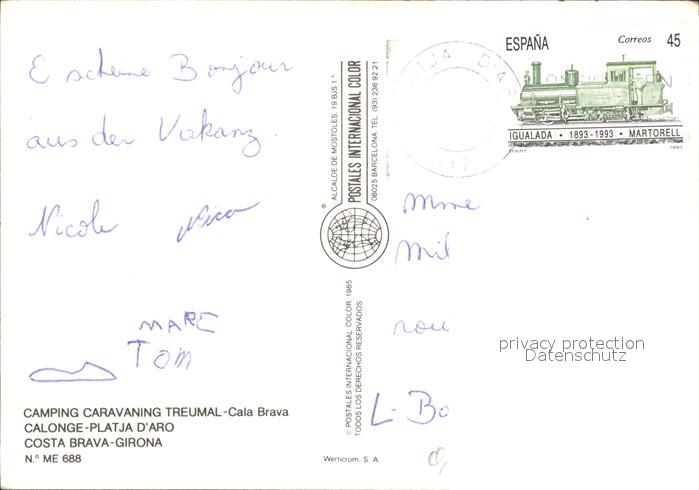 E scheine Bonjour
aus der Vakanz.
Nicole Nico
MARC
TOM
CAMPING CARAVANING TREUMAL-Cala Brava
CALONGE-PLATJA D'ARO
COSTA BRAVA-GIRONA
N.º ME 688
® ALCALDE DE MOSTOLES, 19 BJS 1.ª
POSTALES INTERNACIONAL COLOR
08025 BARCELONA TEL. (93) 236 92 21
© POSTALES INTERNACIONAL COLOR, 1985
TODOS LOS DERECHOS RESERVADOS
Werticrom, S. A.
PLATJA D'A
17
ESPAÑA Correos 45
IGUALADA • 1893-1993 • MARTORELL
1993
Mme
Mil
rou
L-Bo
privacy protection
Datenschutz